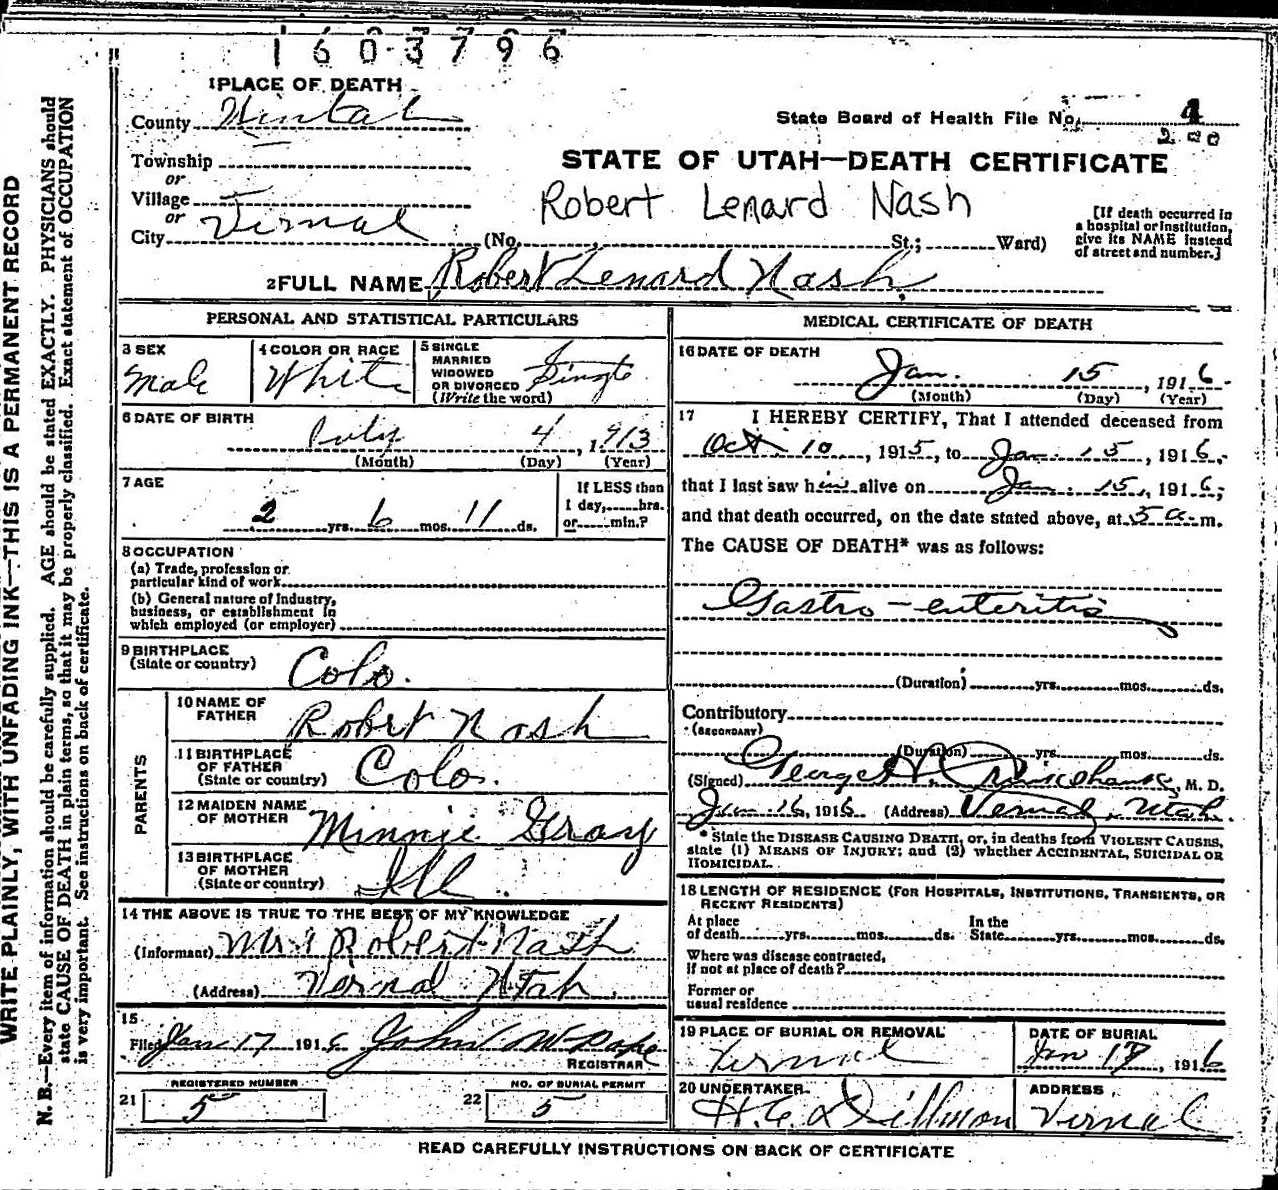 1603796
1 PLACE OF DEATH
County Uintah
State Board of Health File No. 4
200
Township
or
STATE OF UTAH—DEATH CERTIFICATE
Village
or
Robert Lenard Nash
City Vernal (No. St.; Ward)
[If death occurred in a hospital or institution, give its NAME instead of street and number.]
2 FULL NAME Robert Lenard Nash
PERSONAL AND STATISTICAL PARTICULARS
3 SEX
Male
4 COLOR OR RACE
White
5 SINGLE
MARRIED
WIDOWED
OR DIVORCED
(Write the word)
Single
6 DATE OF BIRTH
July 4, 1913
(Month) (Day) (Year)
7 AGE
2 yrs. 6 mos. 11 ds.
If LESS than
1 day, hrs.
or min.?
8 OCCUPATION
(a) Trade, profession or
particular kind of work
(b) General nature of Industry,
business, or establishment in
which employed (or employer)
9 BIRTHPLACE
(State or country)
Colo.
PARENTS
10 NAME OF
FATHER
Robert Nash
11 BIRTHPLACE
OF FATHER
(State or country)
Colo.
12 MAIDEN NAME
OF MOTHER
Minnie Gray
13 BIRTHPLACE
OF MOTHER
(State or country)
Ill.
14 THE ABOVE IS TRUE TO THE BEST OF MY KNOWLEDGE
(Informant) Mrs Robert Nash
(Address) Vernal Utah.
15
Filed Jan 17 1916 John W Pope
REGISTRAR
21 REGISTERED NUMBER
5
22 NO. OF BURIAL PERMIT
5
MEDICAL CERTIFICATE OF DEATH
16 DATE OF DEATH
Jan. 15, 1916
(Month) (Day) (Year)
17 I HEREBY CERTIFY, That I attended deceased from
Oct 10, 1915, to Jan. 15, 1916,
that I last saw him alive on Jan. 15, 1916;
and that death occurred, on the date stated above, at 5 a. m.
The CAUSE OF DEATH* was as follows:
Gastro-enteritis
(Duration) yrs. mos. ds.
Contributory
(SECONDARY)
(Duration) yrs. mos. ds.
(Signed) George H. , M. D.
Jan. 16, 1916 (Address) Vernal, Utah.
*State the DISEASE CAUSING DEATH, or, in deaths from VIOLENT CAUSES,
state (1) MEANS OF INJURY; and (2) whether ACCIDENTAL, SUICIDAL OR
HOMICIDAL.
18 LENGTH OF RESIDENCE (FOR HOSPITALS, INSTITUTIONS, TRANSIENTS, OR
RECENT RESIDENTS)
At place
of death yrs. mos. ds.
In the
State yrs. mos. ds.
Where was disease contracted,
if not at place of death?
Former or
usual residence
19 PLACE OF BURIAL OR REMOVAL
Vernal
DATE OF BURIAL
Jan 17, 1916
20 UNDERTAKER
H. C. Dillman
ADDRESS
Vernal
READ CAREFULLY INSTRUCTIONS ON BACK OF CERTIFICATE
WRITE PLAINLY, WITH UNFADING INK—THIS IS A PERMANENT RECORD
N. B.—Every item of information should be carefully supplied. AGE should be stated EXACTLY. PHYSICIANS should
state CAUSE OF DEATH in plain terms, so that it may be properly classified. Exact statement of OCCUPATION
is very important. See instructions on back of certificate.